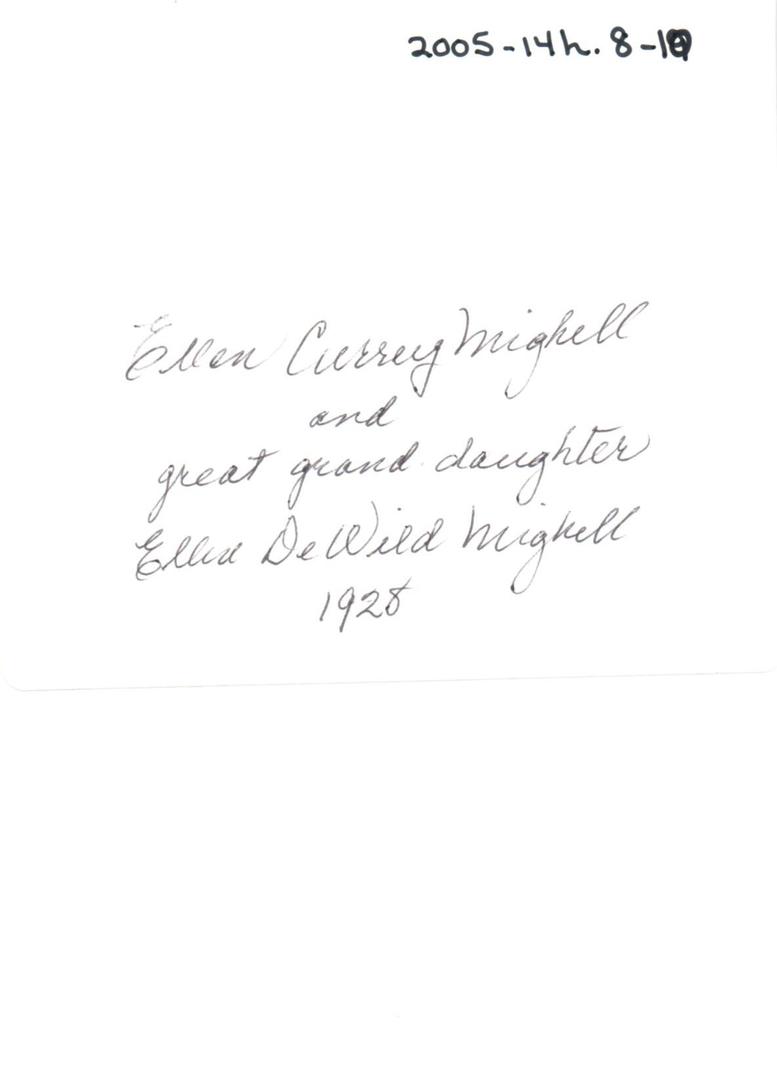 2005-14h. 8-10
Ellen Currey Mighell
and
great grand daughter
Ellen DeWild Mighell
1928